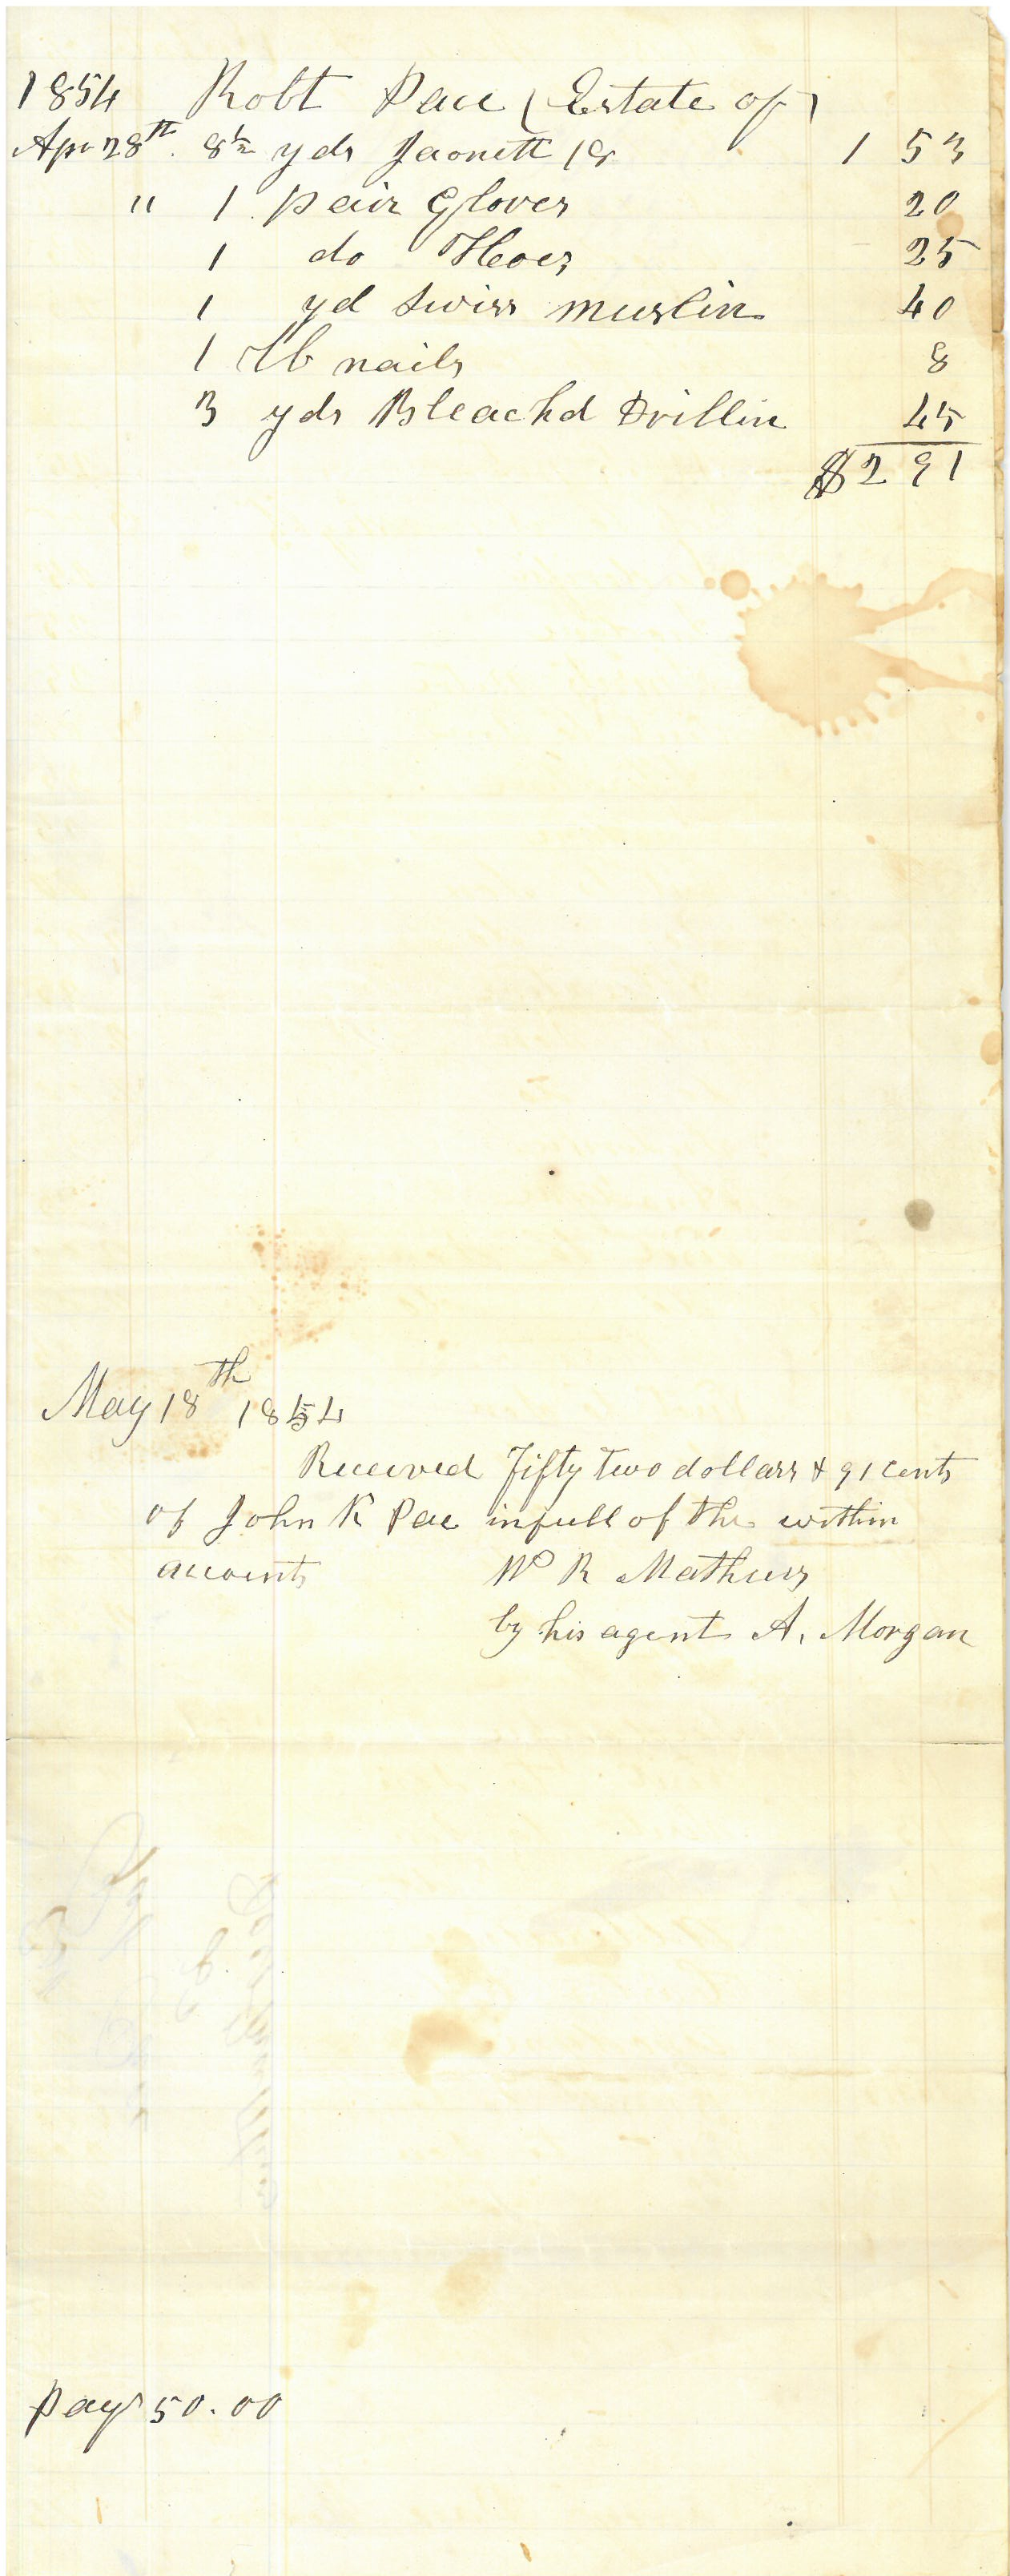 1854 Robt Pace (Estate of)
Apr 28th. 8½ yds Jaonett 18 1 53
" 1 pair Gloves 20
1 do Hoes 25
1 yd Swiss muslin 40
1 lb nails 8
3 yds Bleachd Drillin 45
$2 91
May 18th 1854
Received Fifty two dollars & 91 cents
of John K Pace in full of the within
accounts Wm R Mathews
by his agent A. Morgan
Pay 50.00